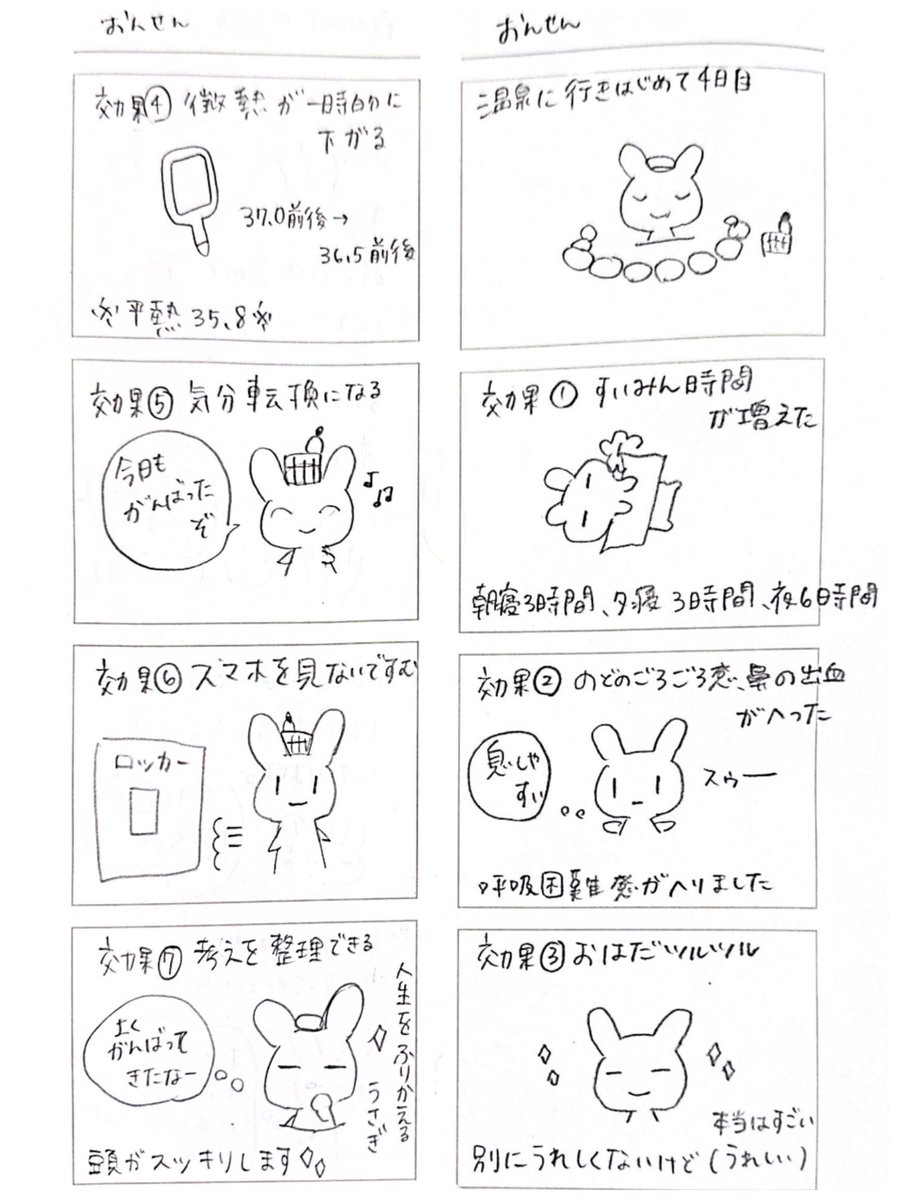 おんせん
温泉に行きはじめて4日目
効果① すいみん時間
が増えた
朝寝3時間、夕寝3時間、夜6時間
効果② のどのごろごろ感、鼻の出血
がへった
息しや
すい
スゥー
呼吸困難感がへりました
効果③ おはだツルツル
本当はすごい
別にうれしくないけど(うれしい)
おんせん
効果④ 微熱が一時的に
下がる
37.0前後→
36.5前後
※平熱35.8※
効果⑤ 気分転換になる
今日も
がんばった
ぞ
効果⑥ スマホを見ないですむ
ロッカー
効果⑦ 考えを整理できる
人生をふりかえる
うさぎ
よく
がんばって
きたなー
頭がスッキリします